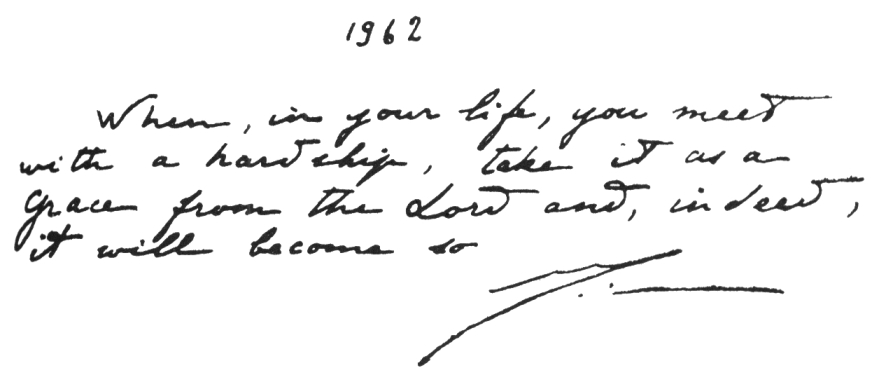 1962
When, in your life, you meet
with a hardship, take it as a
grace from the Lord and, indeed,
it will become so